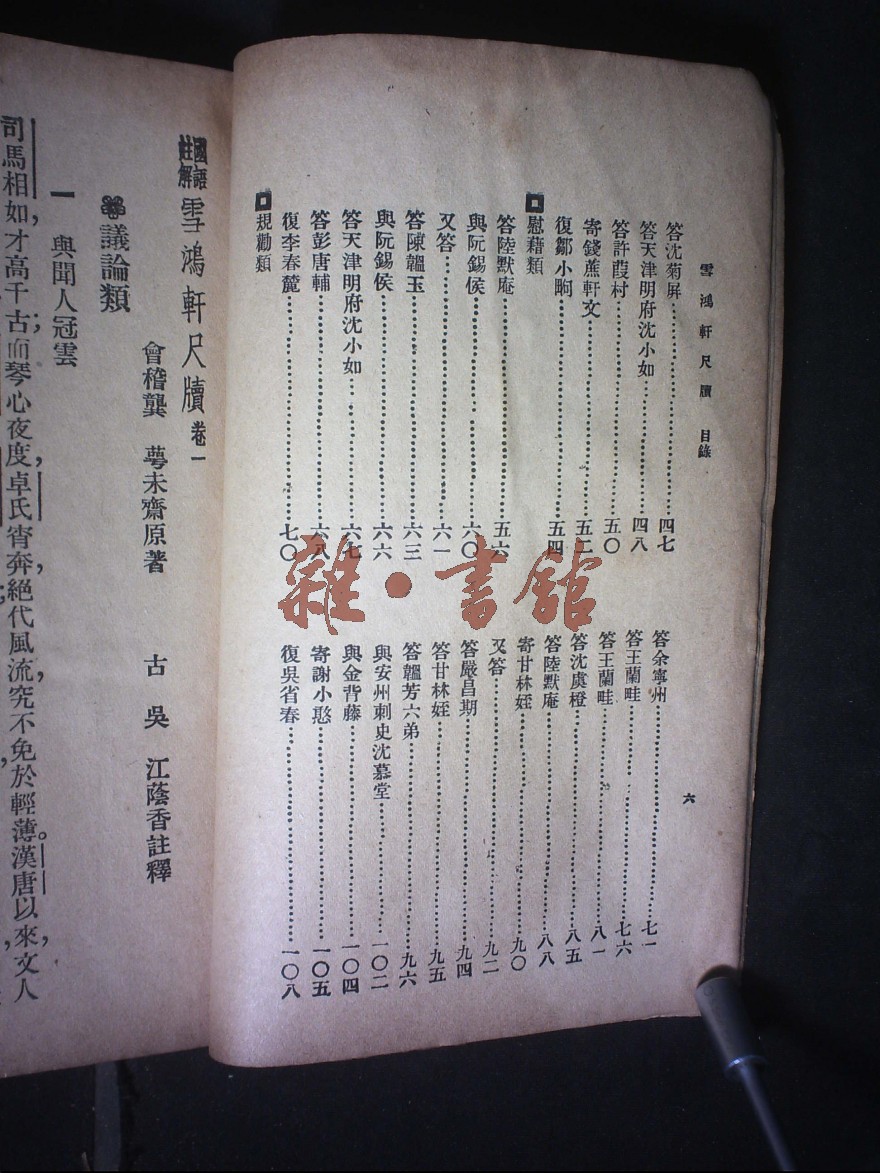 雪鴻軒尺牘 目錄
六
答沈菊屏……四七
答天津明府沈小如……四八
答許葭村……五〇
寄錢蔗軒文……五二
復鄒小畇……五四
慰藉類
答陸默庵……五六
與阮錫侯……六〇
又答……六一
答陳韞玉……六三
與阮錫侯……六六
答天津明府沈小如……六七
答彭唐輔……六八
復李春麓……七〇
規勸類
答余寧州……七一
答王蘭畦……七六
答王蘭畦……八一
答沈虞橙……八五
答陸默庵……八八
寄甘林姪……九〇
又答……九二
答嚴昌期……九四
答甘林姪……九五
答韞芳六弟……九六
與安州刺史沈慕堂……一〇二
與金背藤……一〇四
寄謝小愍……一〇五
復吳省春……一〇八
國語註解 雪鴻軒尺牘 卷一
會稽龔 萼未齋原著 古吳 江蔭香註釋
議論類
一 與聞人冠雲
司馬相如,才高千古;而琴心夜度,卓氏宵奔,絕代風流,究不免於輕薄。漢唐以來,文人
雜·書館